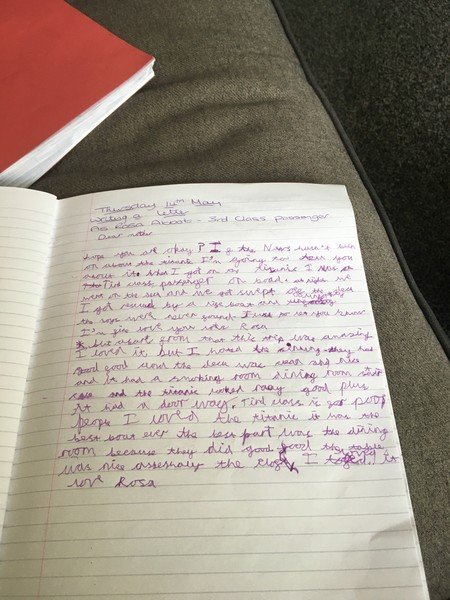 Thursday 14th May
Writing a letter
As Rosa Abbot - 3rd Class Passenger
Dear
hope you are okay? I the News hasn't been
on about the titanic I'm going to tell you
about it when I got on the titanic I was
Tird class passenger on board at night we
went on the sea and we got swept
I got rescued by a life boat and
the boys were never found. I just to let you know
I'm fine love you Rosa
* but apart from that this trip was amazing
I loved it but I hated the they had
good good and the deck was clean and nice
and it had a smoking room dining room
and the titanic looked really good plus
it had a door way. Tird class is for poor
people I loved the titanic it was the
best boat ever the best part was the dining
room because they did good food the table
was nice the I loved it
love Rosa